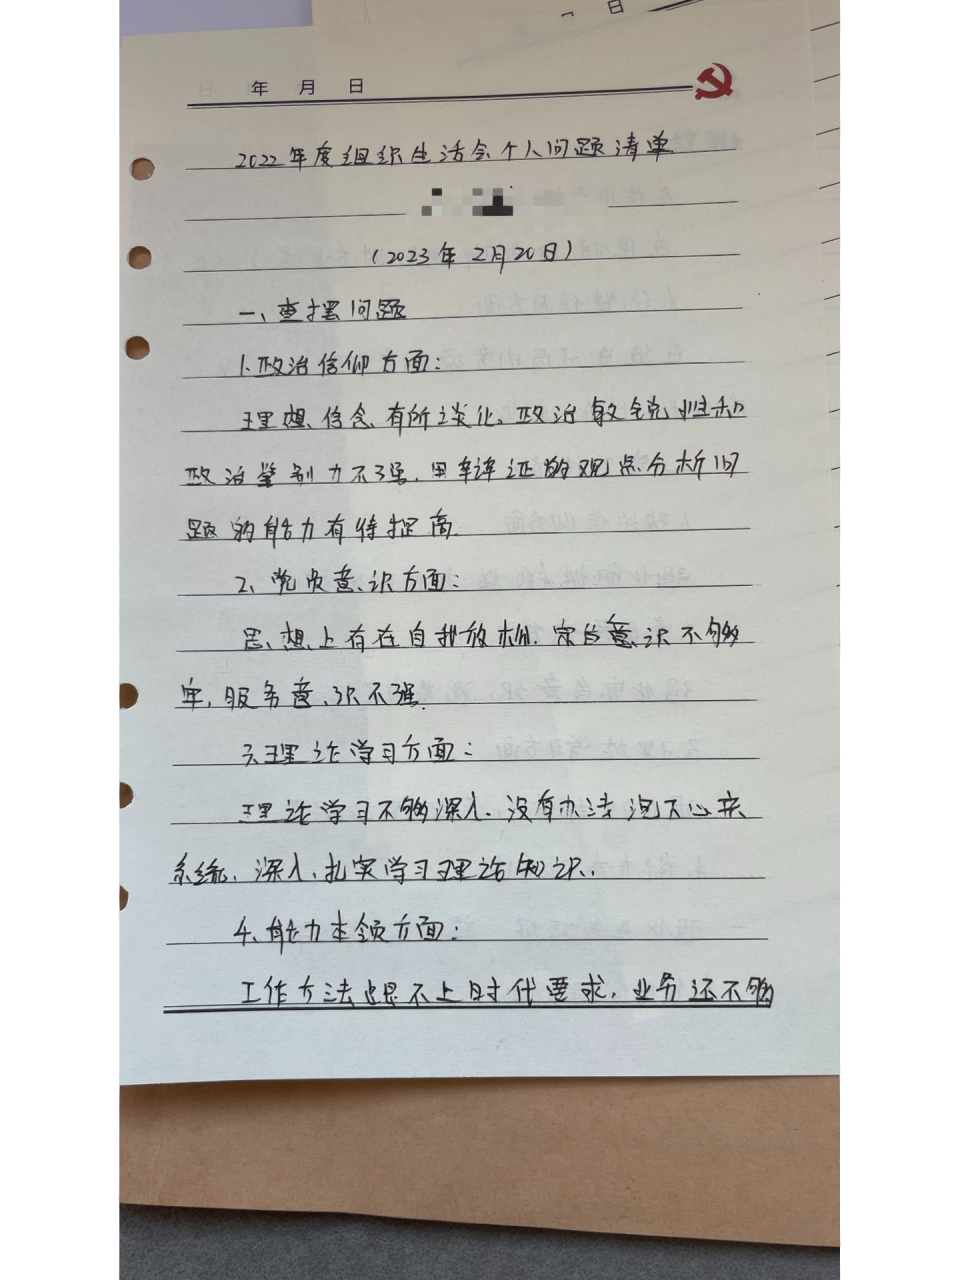 日
年 月 日
2022年度组织生活会个人问题清单
(2023年2月20日)
一、查摆问题
1.政治信仰方面:
理想信念有所淡化,政治敏锐性和
政治鉴别力不强,用辩证的观点分析问
题的能力有待提高.
2、党员意识方面:
思想上有在自我放松.宗旨意识不够
牢,服务意识不强.
3.理论学习方面:
理论学习不够深入.没有办法沉下心来
系统、深入、扎实学习理论知识.
4、能力本领方面:
工作方法跟不上时代要求,业务还不够